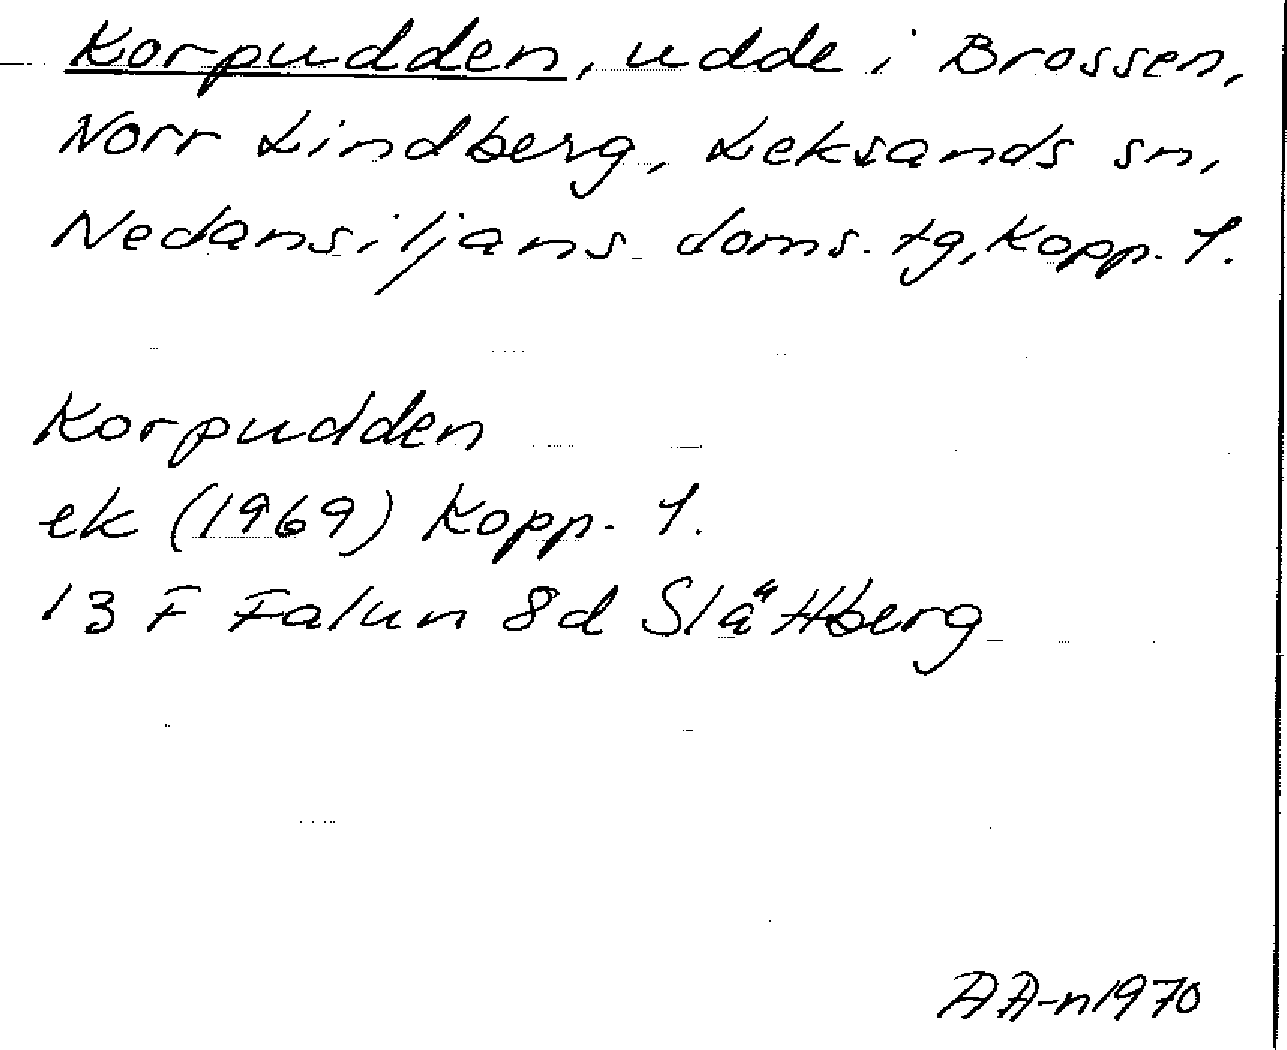 Korpudden, udde i Brossen,
Norr Lindberg, Leksands sn,
Nedansiljans doms. tg, Kopp. l.
Korpudden
ek (1969) Kopp. l.
13 F Falun 8d Slättberg
AA-n 1970